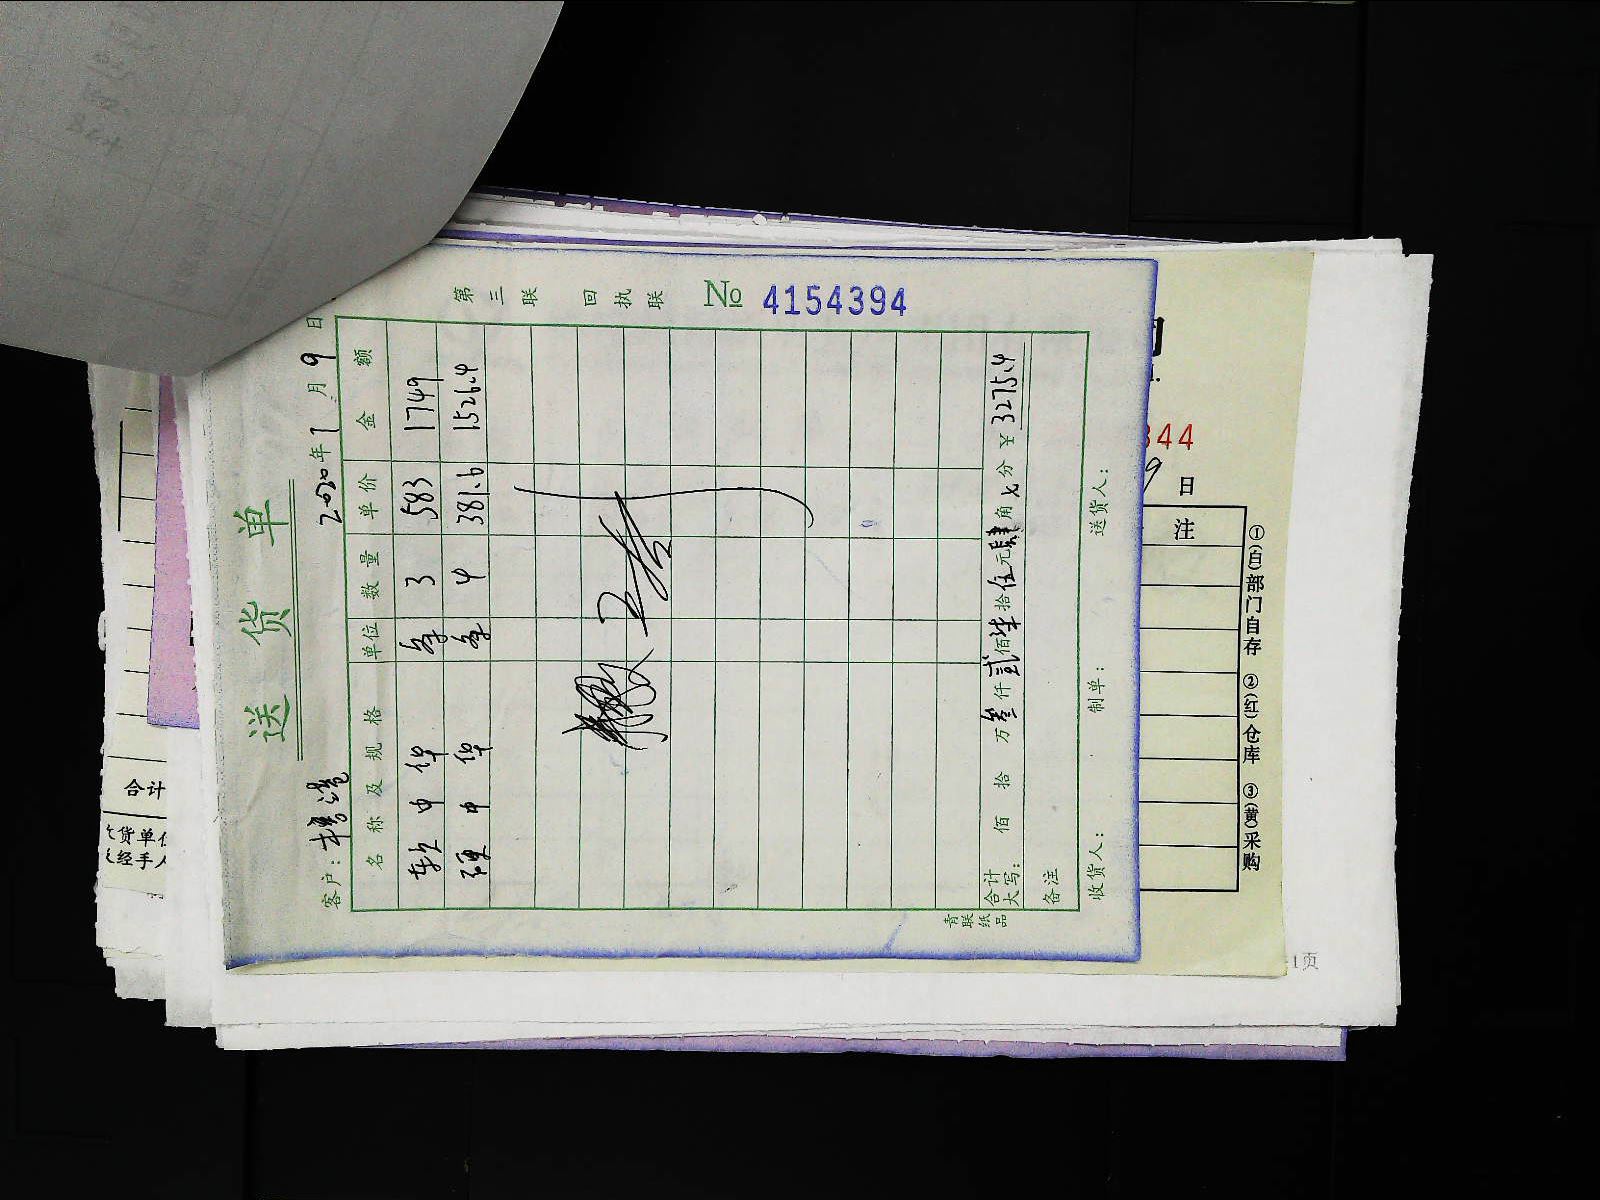 送 货 单
第三联 回执联 № 4154394
客户: 2020年7月9日
名称及规格 单位 数量 单价 金额
软中华 条 3 583 1749
硬中华 条 4 381.6 1526.4
合计大写: 佰 拾 万叁仟贰佰柒拾伍元肆角 分 ¥3275.4
备注
收货人: 制单: 送货人:
青联纸品
合计
货单
经手人
344
9日
注
①(白)部门自存 ②(红)仓库 ③(黄)采购
1页